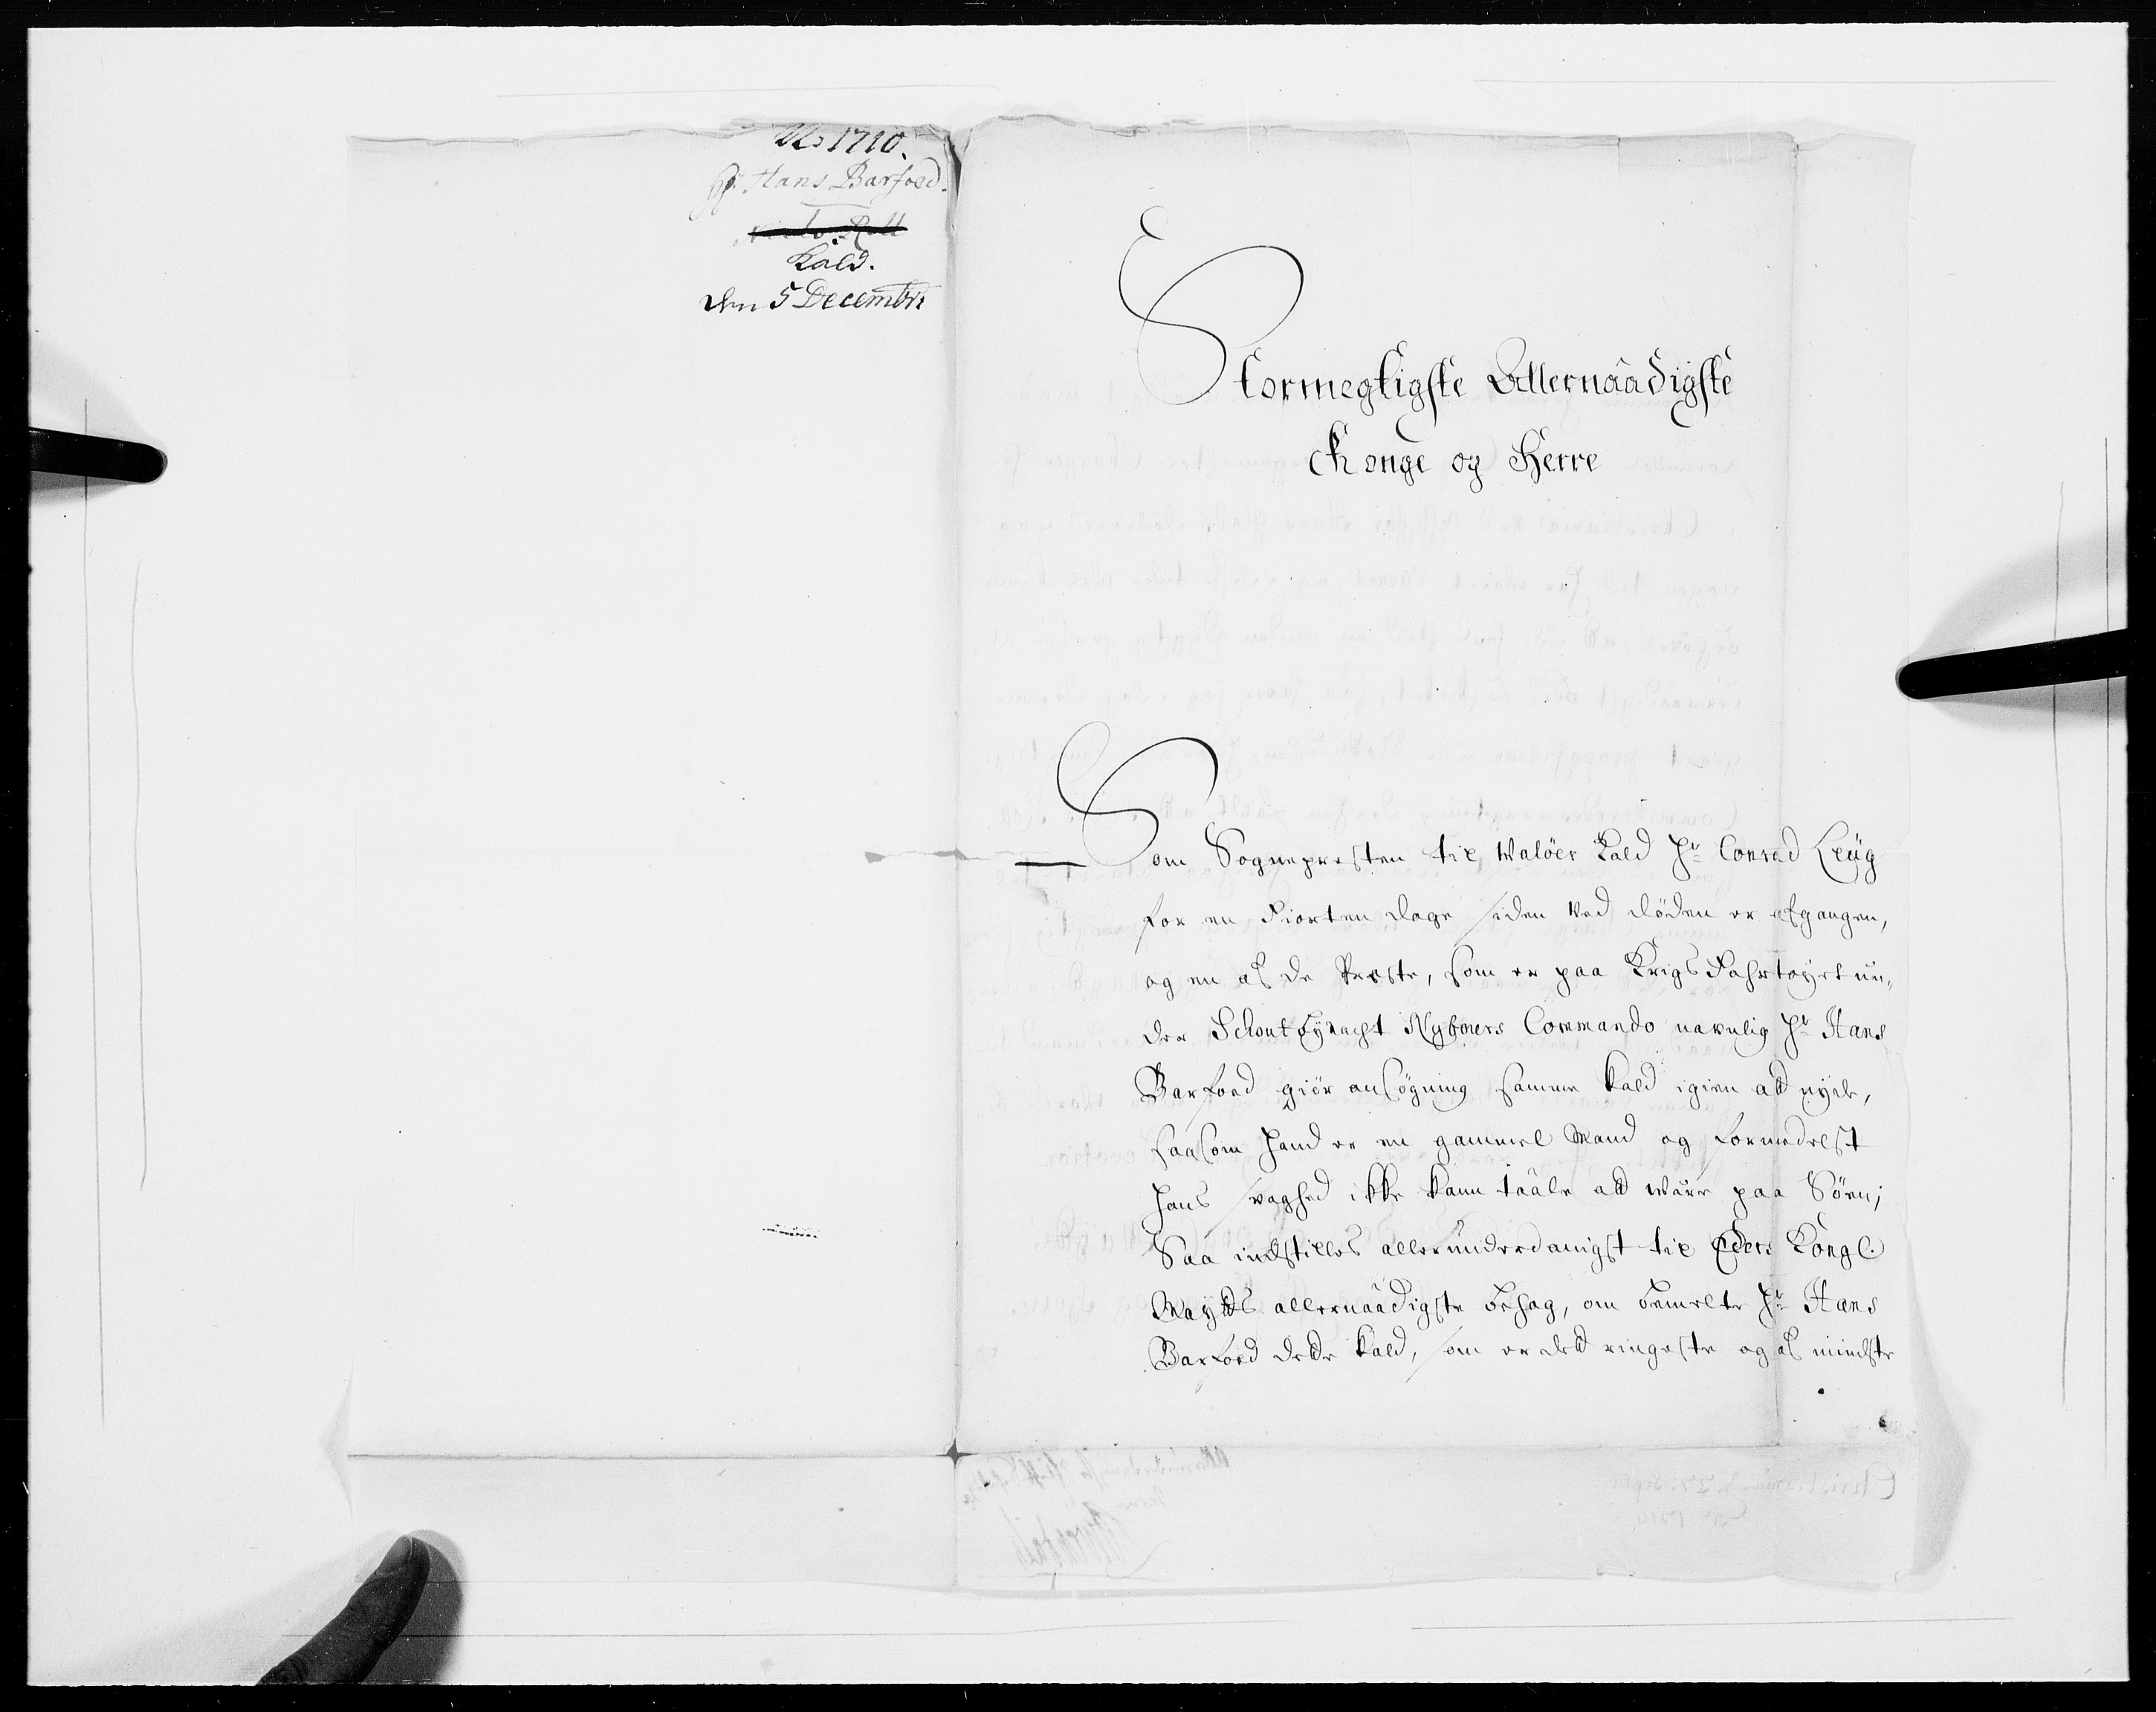 Ao 1710.
Hr Hans Barfoed.
Kald.
den 5 Decembr
Stormegtigste Allernaadigste
Konge og Herre
Som Sognepresten til Waløer Kald Hr Conrad
for en Fiorten dage siden Ved døden er afgangen,
og en af de Præste, som er paa Krigs Fahrtøyet un„
der Schoutbynacht Commando navnlig Hr Hans
Barfoed giør ansøgning samme Kald igien at nyde,
saasom hand er en gammel Mand og formedelst
hans svaghed ikke kann taale at være paa Søen;
Saa indstilles allerunderdanigst til Eders Kongl.
Mayts allernaadigste behag, om bemelte Hr Hans
Barfoed dette Kald, som er det ringeste og af mindste